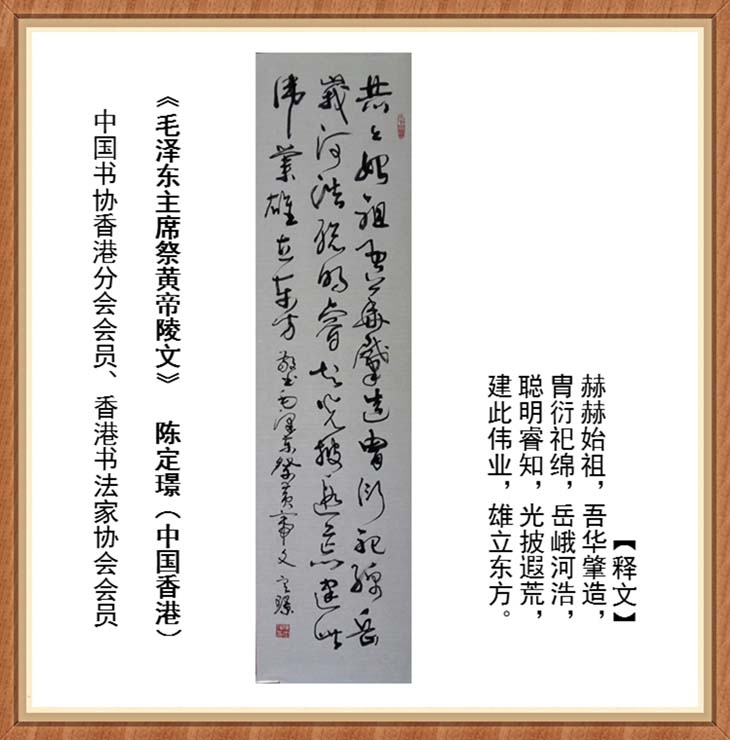 【释文】
赫赫始祖，吾华肇造，
胄衍祀绵，岳峨河浩，
聪明睿知，光披遐荒，
建此伟业，雄立东方。
赫々始祖吾华肇造胄衍祀绵岳
峩河浩聪明睿知光披遐荒建此
伟業雄立东方 敬书毛泽东祭黄帝文 定璟
《毛泽东主席祭黄帝陵文》 陈定璟（中国香港）
中国书协香港分会会员、香港书法家协会会员